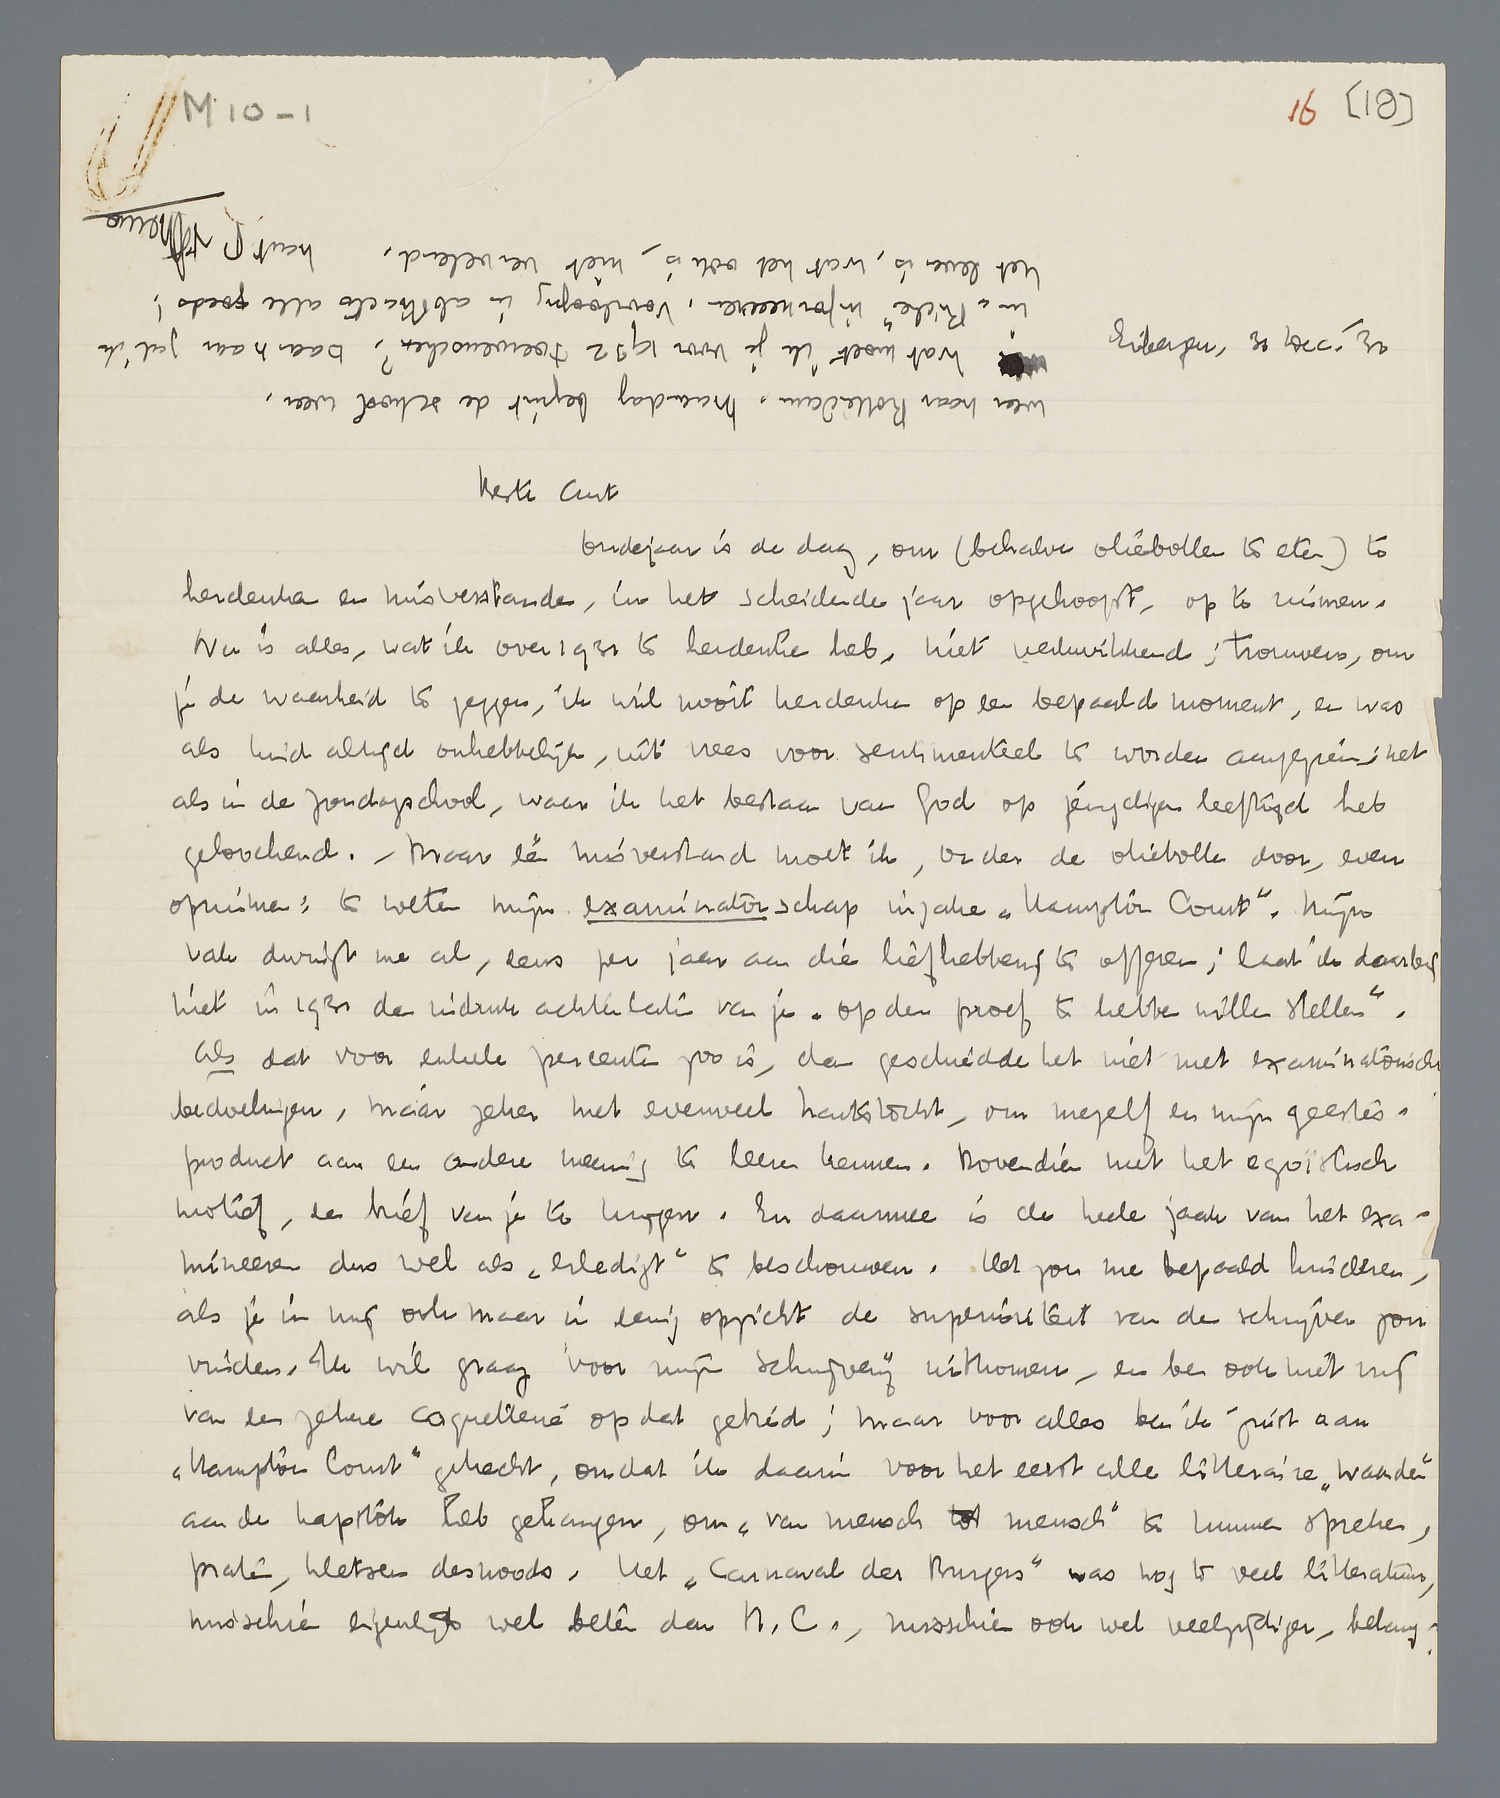 M 10-1
16 [18]
Eibergen, 31 Dec. '31
Beste Cunt
Oudejaar is de dag, om (behalve oliebollen te eten) te
herdenken en misverstanden, in het scheidende jaar opgehoopt, op te ruimen.
Nu is alles, wat ik over 1931 te herdenken heb, niet verkwikkend; trouwens, om
je de waarheid te zeggen, ik wil nooit herdenken op een bepaald moment, en was
als kind altijd onhebbelijk, uit vrees voor sentimenteel te worden aangezien; net
als in de zondagschool, waar ik het bestaan van God op jeugdigen leeftijd heb
geloochend. - Maar één misverstand moet ik, onder de oliebollen door, even
opruimen: te weten mijn examinatorschap inzake „Hampton Court". Mijn
vak dwingt me al, eens per jaar aan die liefhebberij te offeren; laat ik daarbij
niet in 1931 den indruk achterlaten van je „op den proef te hebben willen stellen".
Als dat voor enkele percenten zoo is, dan geschiedde het niet met examinatorische
bedoelingen, maar zeker met evenveel hartstocht, om mezelf en mijn geestes-
product aan een andere meening te leeren kennen. Bovendien met het egoïstisch
motief, een brief van je te krijgen. En daarmee is de heele zaak van het exa-
mineeren dus wel als „erledigt" te beschouwen. Het zou me bepaald hinderen,
als je in mij ook maar in eenig opzicht de superioriteit van den schrijver zou
vinden. Ik wil graag voor mijn schrijverij uitkomen, en ben ook niet vrij
van een zekere coquetterie op dat gebied; maar voor alles ben ik juist aan
„Hampton Court" gehecht, omdat ik daarin voor het eerst alle litteraire „waarden"
aan de kapstok heb gehangen, om „van mensch tot mensch" te kunnen spreken,
praten, kletsen desnoods. Het „Carnaval der Burgers" was nog te veel litteratuur,
misschien eigenlijk wel beter dan H.C., misschien ook wel veelzijdiger, belang-
weer naar Rotterdam. Maandag begint de school weer.
Wat moet ik je voor 1932 toewenschen? Daarnaar zal ik
in „Riche" informeeren. Voorloopig in abstracto alle goeds!
het leven is, wat het ook is, niet vervelend.
hart. gr. Menno